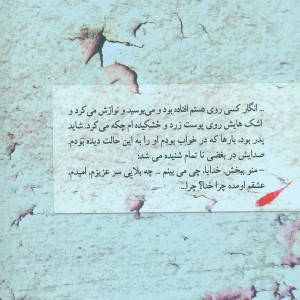 ... انگار کسی روی دستم افتاده بود و می‌بوسید و نوازش می‌کرد و
اشک هایش روی پوست زرد و خشکیده ام چکه می‌کرد. شاید
پدر بود، بارها که در خواب بودم او را به این حالت دیده بودم.
صدایش در بغضی نا تمام شنیده می شد:
- منو ببخش. خدایا، چی می بینم .. چه بلایی سر عزیزم، امیدم،
عشقم اومده چرا خدا؟ چرا...